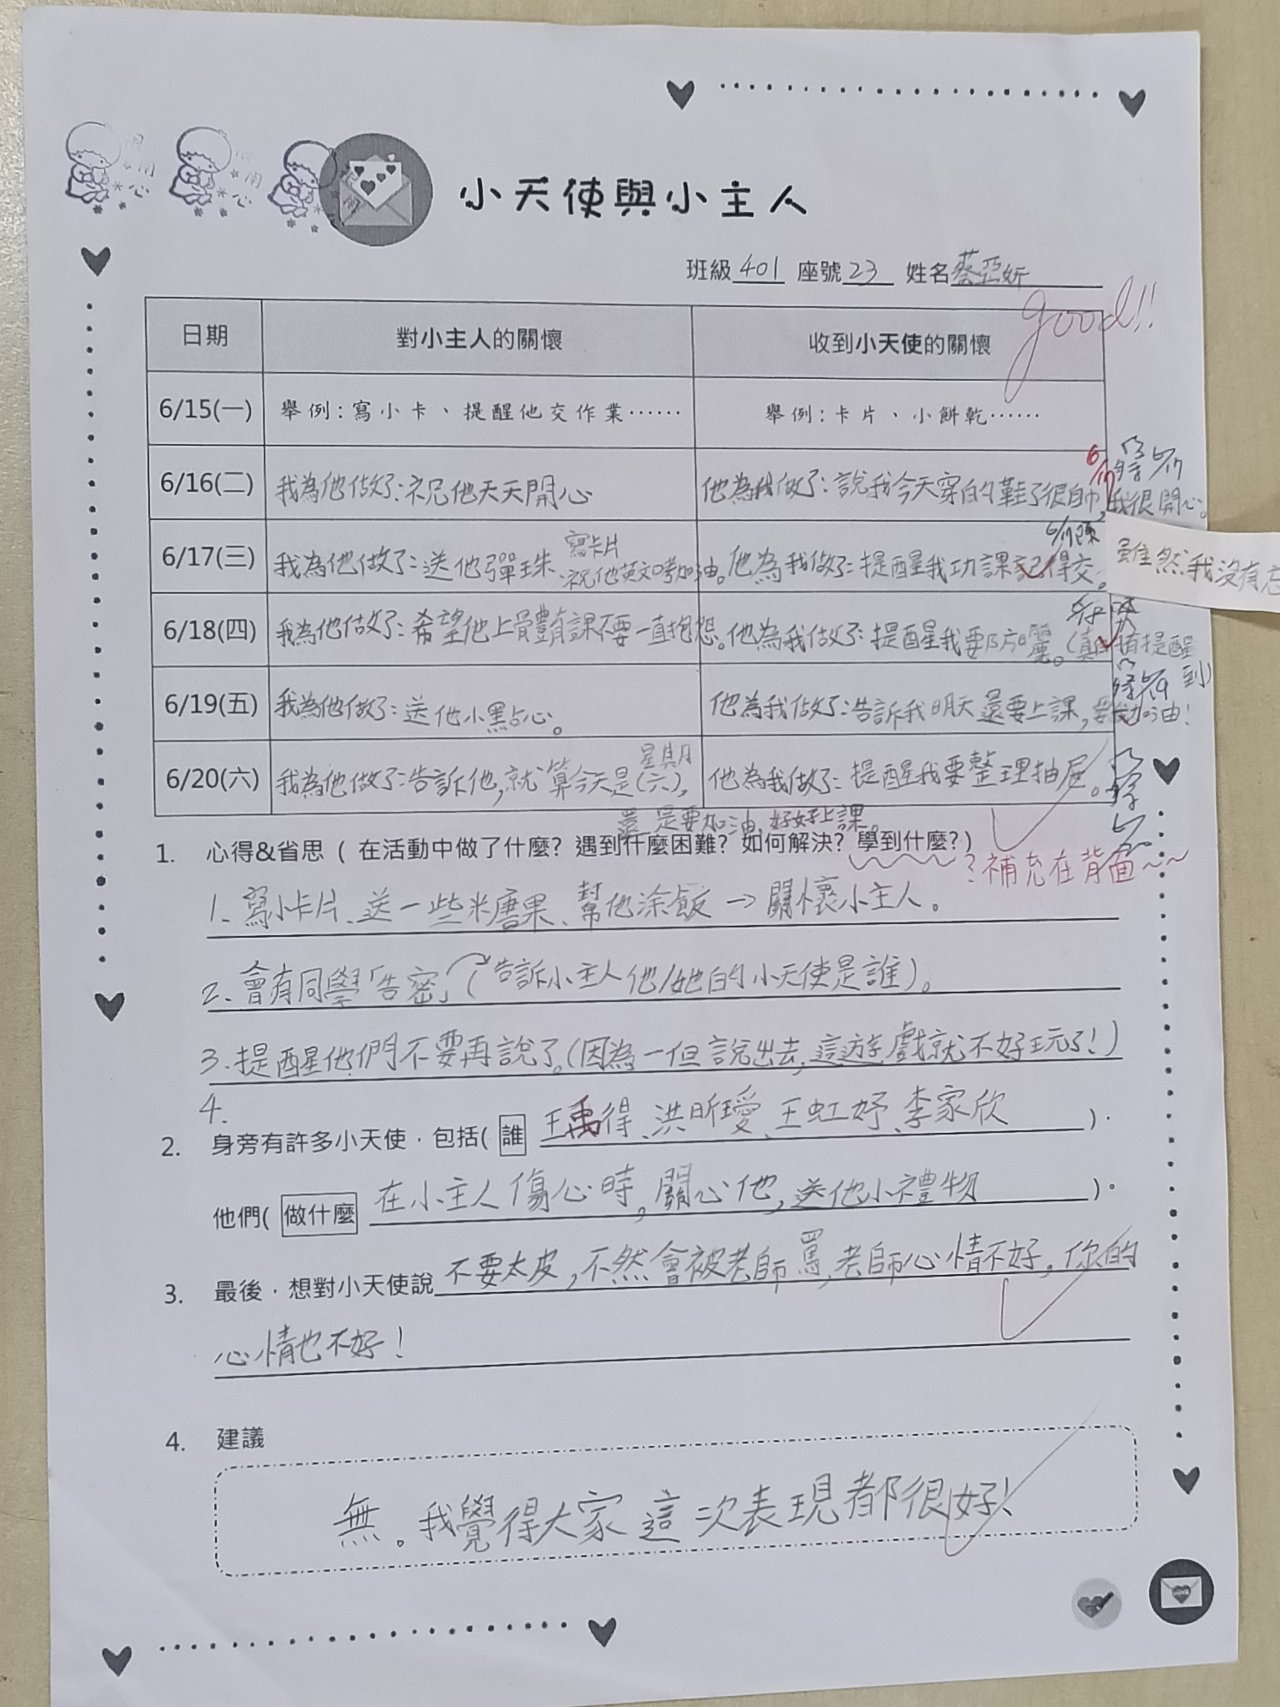 小天使與小主人
班級 401 座號 23 姓名 蔡亞妡
good!!
日期 對小主人的關懷 收到小天使的關懷
6/15(一) 舉例:寫小卡、提醒他交作業…… 舉例:卡片、小餅乾……
6/16(二) 我為他做了:祝他天天開心 他為我做了:說我今天穿的鞋子很帥,我很開心。
6/17
6/17(三) 我為他做了:送他彈珠、寫卡片祝他英文口考加油。 他為我做了:提醒我功課記得交。
雖然我沒有忘
6/18(四) 我為他做了:希望他上體育課不要一直抱怨。 他為我做了:提醒我要防曬。
6/19(五) 我為他做了:送他小點心。 他為我做了:告訴我明天還要上課,要加油!
6/20(六) 我為他做了:告訴他,就算今天是星期(六), 他為我做了:提醒我要整理抽屜。
還是要加油、好好上課。
1. 心得&省思 ( 在活動中做了什麼? 遇到什麼困難? 如何解決? 學到什麼?)
?補充在背面~~
1. 寫小卡片、送一些糖果、幫他添飯→關懷小主人。
2. 會有同學「告密」(告訴小主人他/她的小天使是誰)。
3. 提醒他們不要再說了。(因為一但說出去,這遊戲就不好玩了!)
4.
2. 身旁有許多小天使,包括( 誰 王禹得、洪昕璦、王虹妤、李家欣 ),
他們( 做什麼 在小主人傷心時,關心他,送他小禮物 )。
3. 最後,想對小天使說 不要太皮,不然會被老師罵,老師心情不好,你的
心情也不好!
4. 建議
無。我覺得大家這次表現都很好!